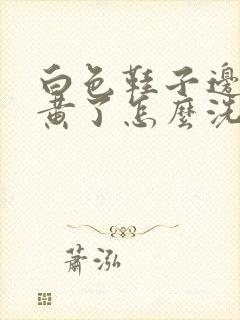 白色鞋子邊
黃了怎麼洗
蕭泓